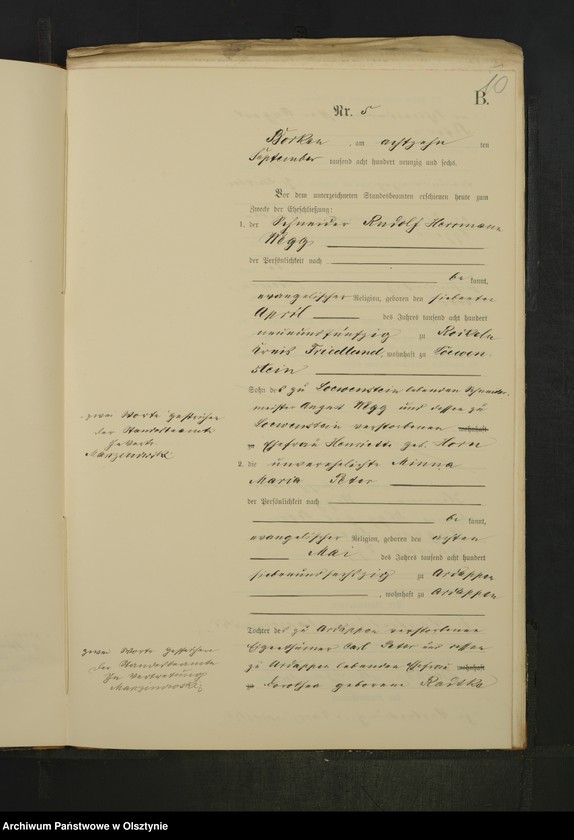 10
B.
Nr. 5
Borken, am achtzehn ten
September tausend acht hundert neunzig und sechs.
Vor dem unterzeichneten Standesbeamten erschienen heute zum
Zwecke der Eheschließung:
1. der Schneider Rudolf Herrmann
Wegg
der Persönlichkeit nach
be kannt,
evangelischer Religion, geboren den siebenten
April des Jahres tausend acht hundert
neunundfünfzig zu
Kreis Friedland, wohnhaft zu Loewen-
stein
Sohn des zu Loewenstein lebenden Schneider-
meister August Wegg und dessen zu
Loewenstein verstorbenen wohnhaft
zu Ehefrau Henriette geb. Horn
zwei Worte gestrichen
der Standesbeamte
Marzinowski
2. die unverehelichte Minna
Maria Peter
der Persönlichkeit nach
be kannt,
evangelischer Religion, geboren den achten
Mai des Jahres tausend acht hundert
siebenundsechzig zu Ardappen
, wohnhaft zu Ardappen
Tochter des zu Ardappen verstorbenen
Eigenthümer Carl Peter und dessen
zu Ardappen lebenden Ehefrau wohnhaft
zu Dorothea geborene
zwei Worte gestrichen
der Standesbeamte
In Vertretung
Marzinowski
Archiwum Państwowe w Olsztynie